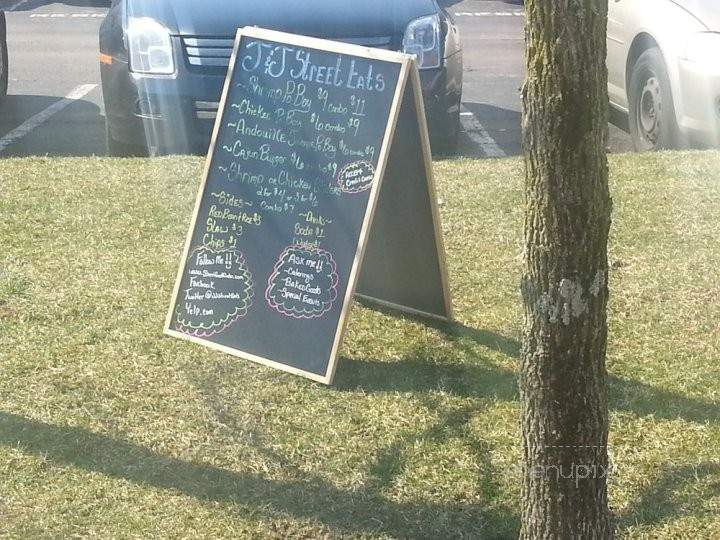 J&J Street Eats
~Shrimp Po Boy $9 combo $11
~Chicken Po Boy $6 combo $9
~Andouille Sausage Po Boy $6 combo $9
~Cajun Burger $6 combo $9
~Shrimp or Chicken
2 for $4 or 3 for $6
combo $7
Accept
Credit Cards
~Sides~
Red Bean & Rice $3
Slaw $3
Chips $1
~Drinks~
Soda $1
Water $1
Follow Me!!
Facebook
Twitter
Yelp.com
Ask me!!
~Catering
~Baked Goods
~Special Events
menupix